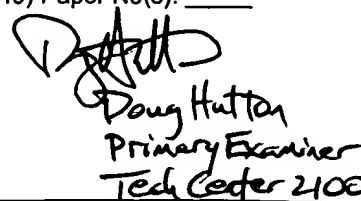 Paper No(s). _____
Doug Hutton
Primary Examiner
Tech Center 2100